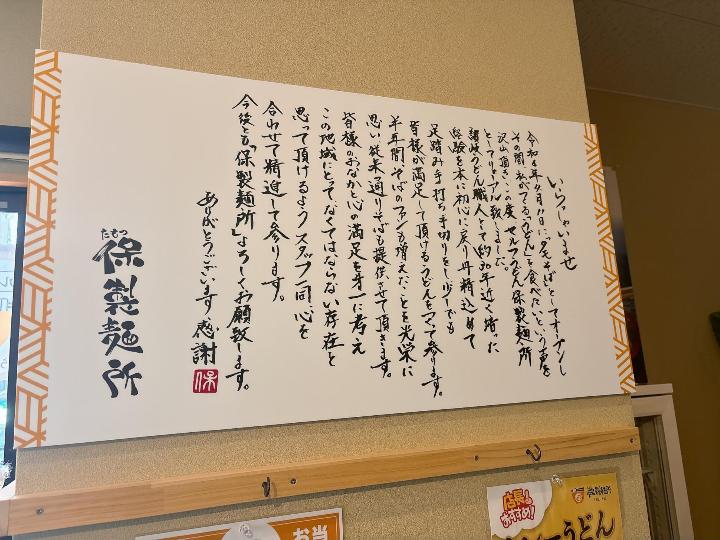 いらっしゃいませ
令和4年4月11日に「そば」としてオープンし
その間、私がつくる「うどん」を食べたいという声を
沢山頂き、この度、セルフうどん保製麺所
としてリニューアル致しました。
讃岐うどん職人として約30年近く培った
経験を本に初心に戻り丹精込めて
足踏み手打ち手切りをし、少しでも
皆様が満足して頂けるうどんをつくって参ります。
半年間そばのファンも増えたことを光栄に
思い従来通りそばも提供させて頂きます。
皆様のおなかと心の満足を第一に考え
この地域にとってなくてはならない存在と
思って頂けるようスタッフ一同心を
合わせて精進して参ります。
今後とも「保製麺所」よろしくお願致します。
ありがとうございます 感謝
保
たもつ
保製麺所
お当
店長おすすめ!
うどん